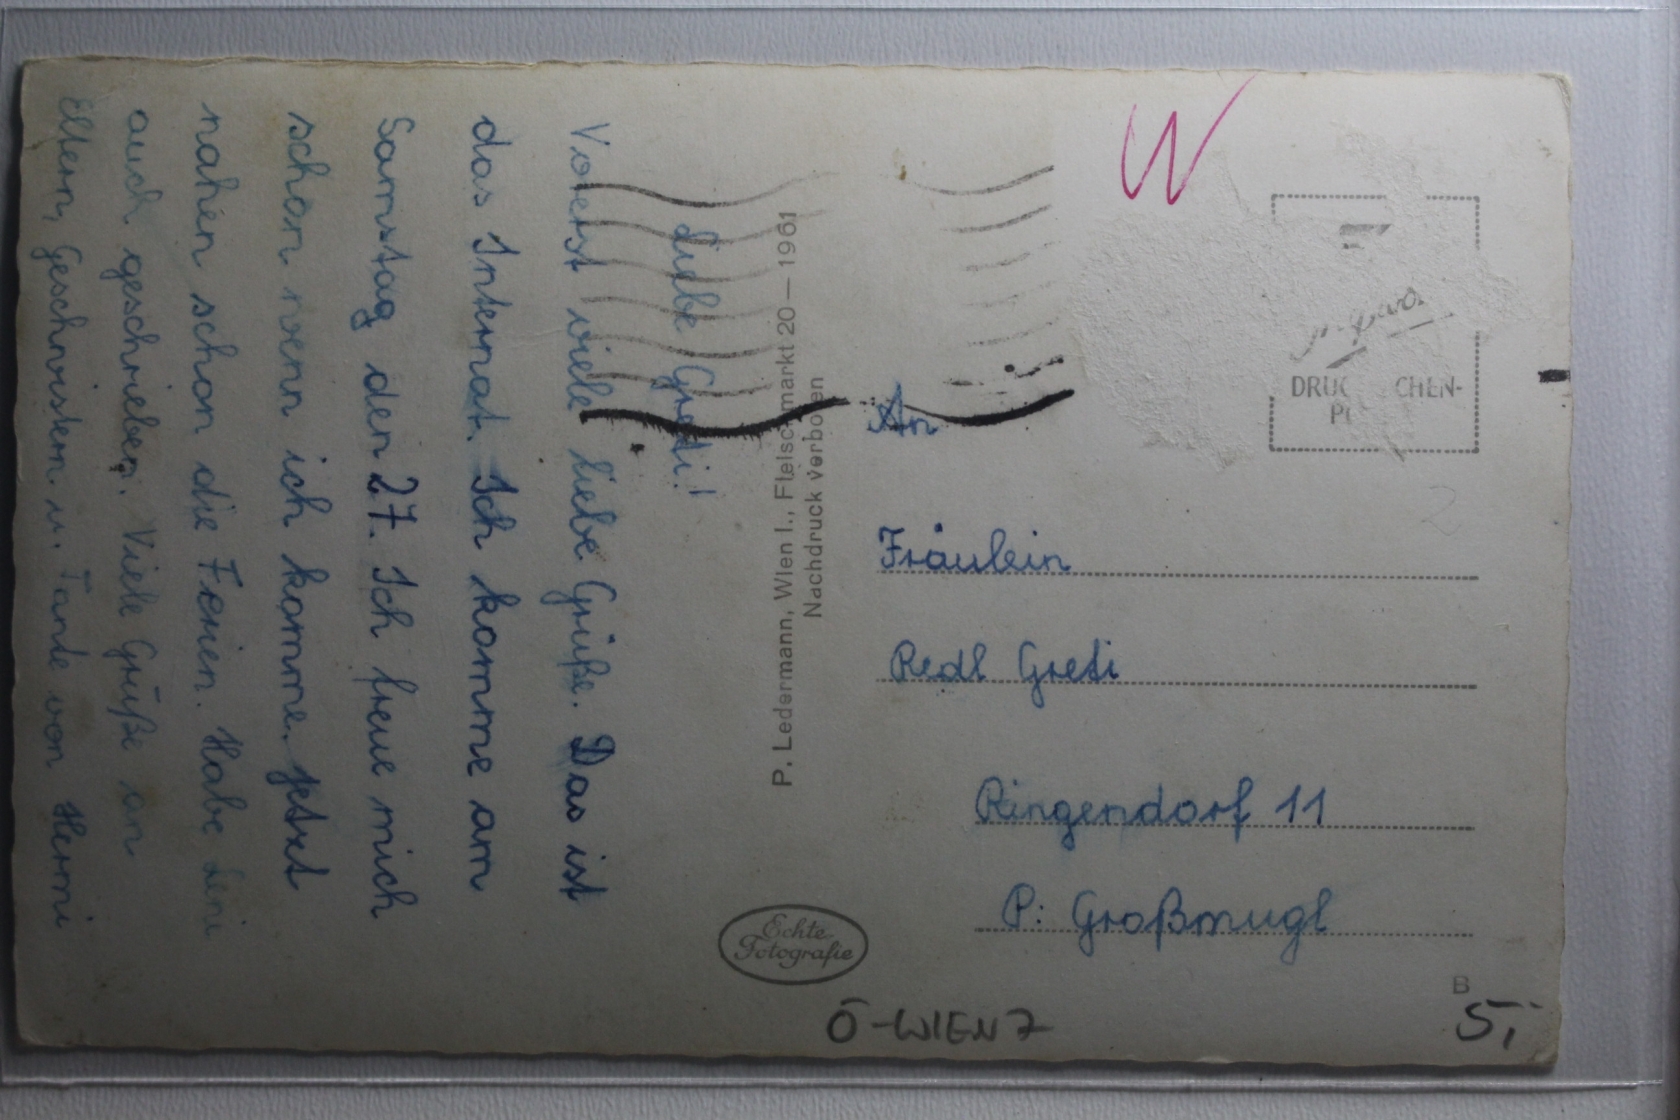 Liebe Greti!
Vorerst viele liebe Grüße. Das ist
das Internat. Ich komme am
Samstag den 27. Ich freue mich
schon wenn ich komme. Jetzt
nahen schon die Ferien. Habe Leni
auch geschrieben. Viele Grüße an
Eltern, Geschwistern u. Tante von Hermi
P. Ledermann, Wien I., Fleischmarkt 20 — 1961
Nachdruck verboten
Echte
Fotografie
W
DRUC CHEN-
An
Fräulein
Redl Greti
Ringendorf 11
P: Großmugl
B
Ö-WIEN 7
5,-
2